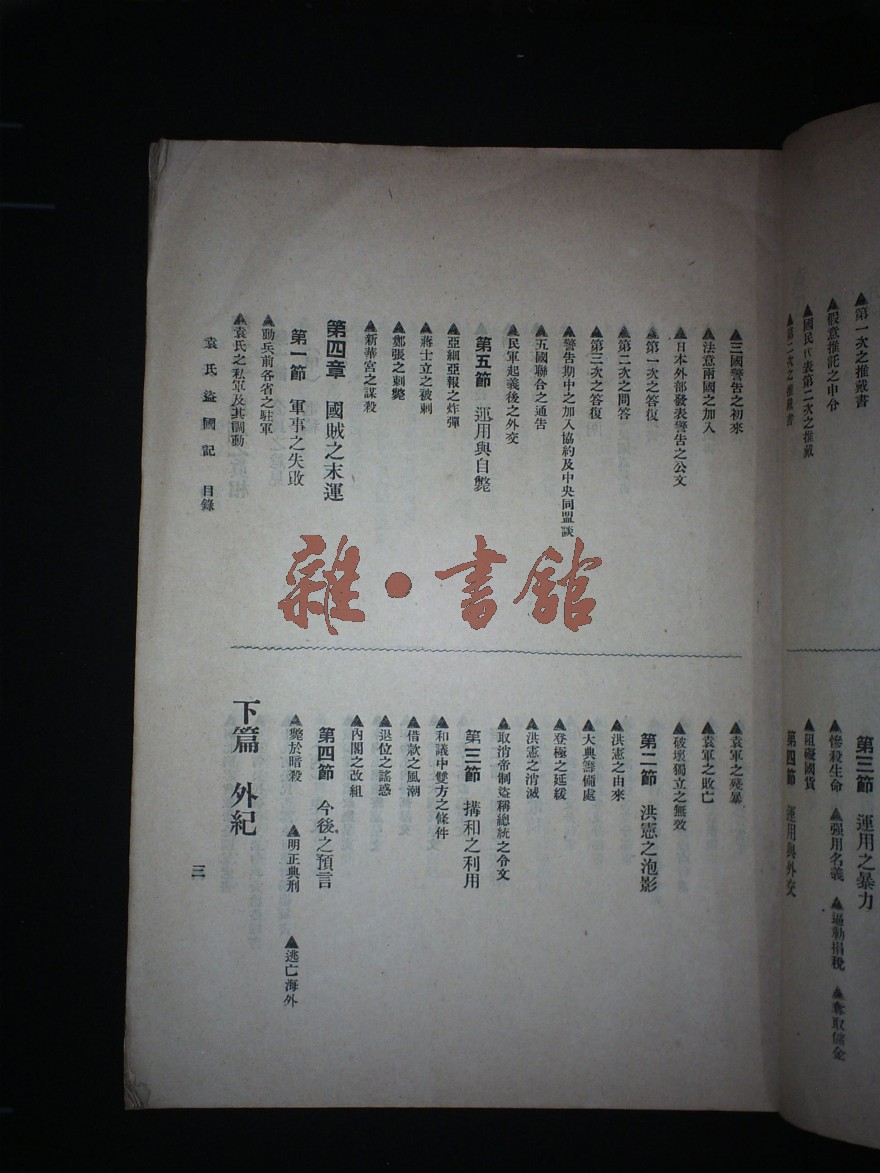 ▲第一次之推戴書
▲假意推託之申令
▲國民代表第二次之推戴
▲第二次之推戴書
第三節 運用之暴力
▲慘殺生命 ▲强用名義 ▲逼勒捐稅 ▲奪取儲金
▲阻礙國貨
第四節 運用與外交
▲三國警告之初來
▲法意兩國之加入
▲日本外部發表警告之公文
▲第一次之答復
▲第二次之問答
▲第三次之答復
▲警告期中之加入協約及中央同盟談
▲五國聯合之通告
▲民軍起義後之外交
第五節 運用與自斃
▲亞細亞報之炸彈
▲蔣士立之被刺
▲鄭張之刺斃
▲新華宮之謀殺
第四章 國賊之末運
第一節 軍事之失敗
▲動兵前各省之駐軍
▲袁氏之私軍及其調動
▲袁軍之殘暴
▲袁軍之敗亡
▲破壞獨立之無效
第二節 洪憲之泡影
▲洪憲之由來
▲大典籌備處
▲登極之延緩
▲洪憲之消滅
▲取消帝制盜稱總統之令文
第三節 搆和之利用
▲和議中雙方之條件
▲借款之風潮
▲退位之謠惑
▲內閣之改組
第四節 今後之預言
▲斃於暗殺 ▲明正典刑 ▲逃亡海外
下篇 外紀
袁氏盜國記 目錄
三
雜·書館